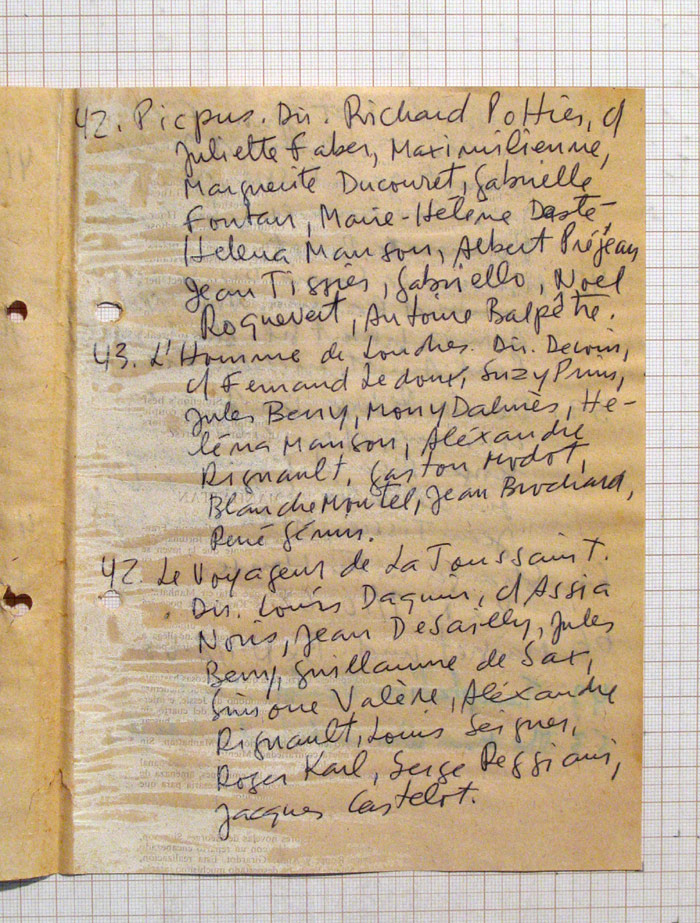 42. Picpus. Dir. Richard Pottier, c/
Juliette Faber, Maximilienne,
Marguerite Ducouret, Gabrielle
Fontan, Marie-Hélène Dasté,
Helena Manson, Albert Préjean
Jean Tissier, Gabriello, Noel
Roquevert, Antoine Balpêtré.
43. L'Homme de Londres. Dir. Decoin,
c/ Fernand Ledoux, Suzy Prim,
Jules Berry, Mony Dalmès, He-
léna Manson, Aléxandre
Rignault, Gaston Modot,
Blanche Montel, Jean Brochard,
René Génin.
42. Le Voyageur de La Toussaint.
Dir. Louis Daquin, c/ Assia
Noris, Jean Desailly, Jules
Berry, Guillaume de Sax,
Simone Valère, Aléxandre
Rignault, Louis Seigner,
Roger Karl, Serge Reggiani,
Jacques Castelot.